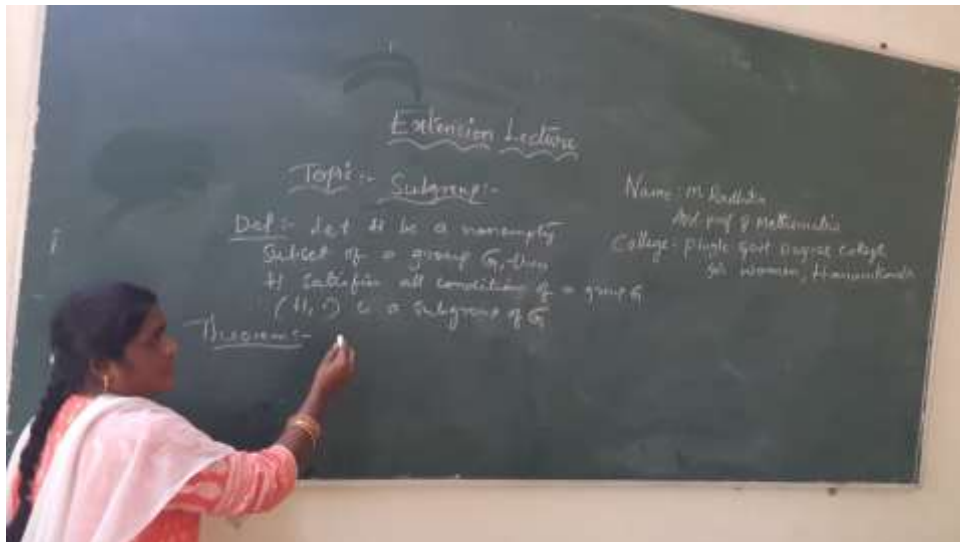 Extension Lecture
Topic:- Subgroup:-
Def:- Let H be a nonempty
Subset of a group G, then
H satisfies all condition of a group G
(H, ·) is a subgroup of G
Theorems:-
Name: M Radhika
prof of Mathematics
College- Pingle Govt Degree College
for Women, Hanumkonda